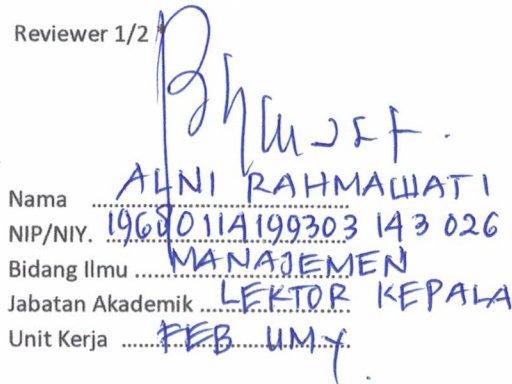 Reviewer 1/2
Nama ALNI RAHMAWATI
NIP/NIY. 19680114199303 143 026
Bidang Ilmu MANAJEMEN
Jabatan Akademik LEKTOR KEPALA
Unit Kerja FEB UMY.